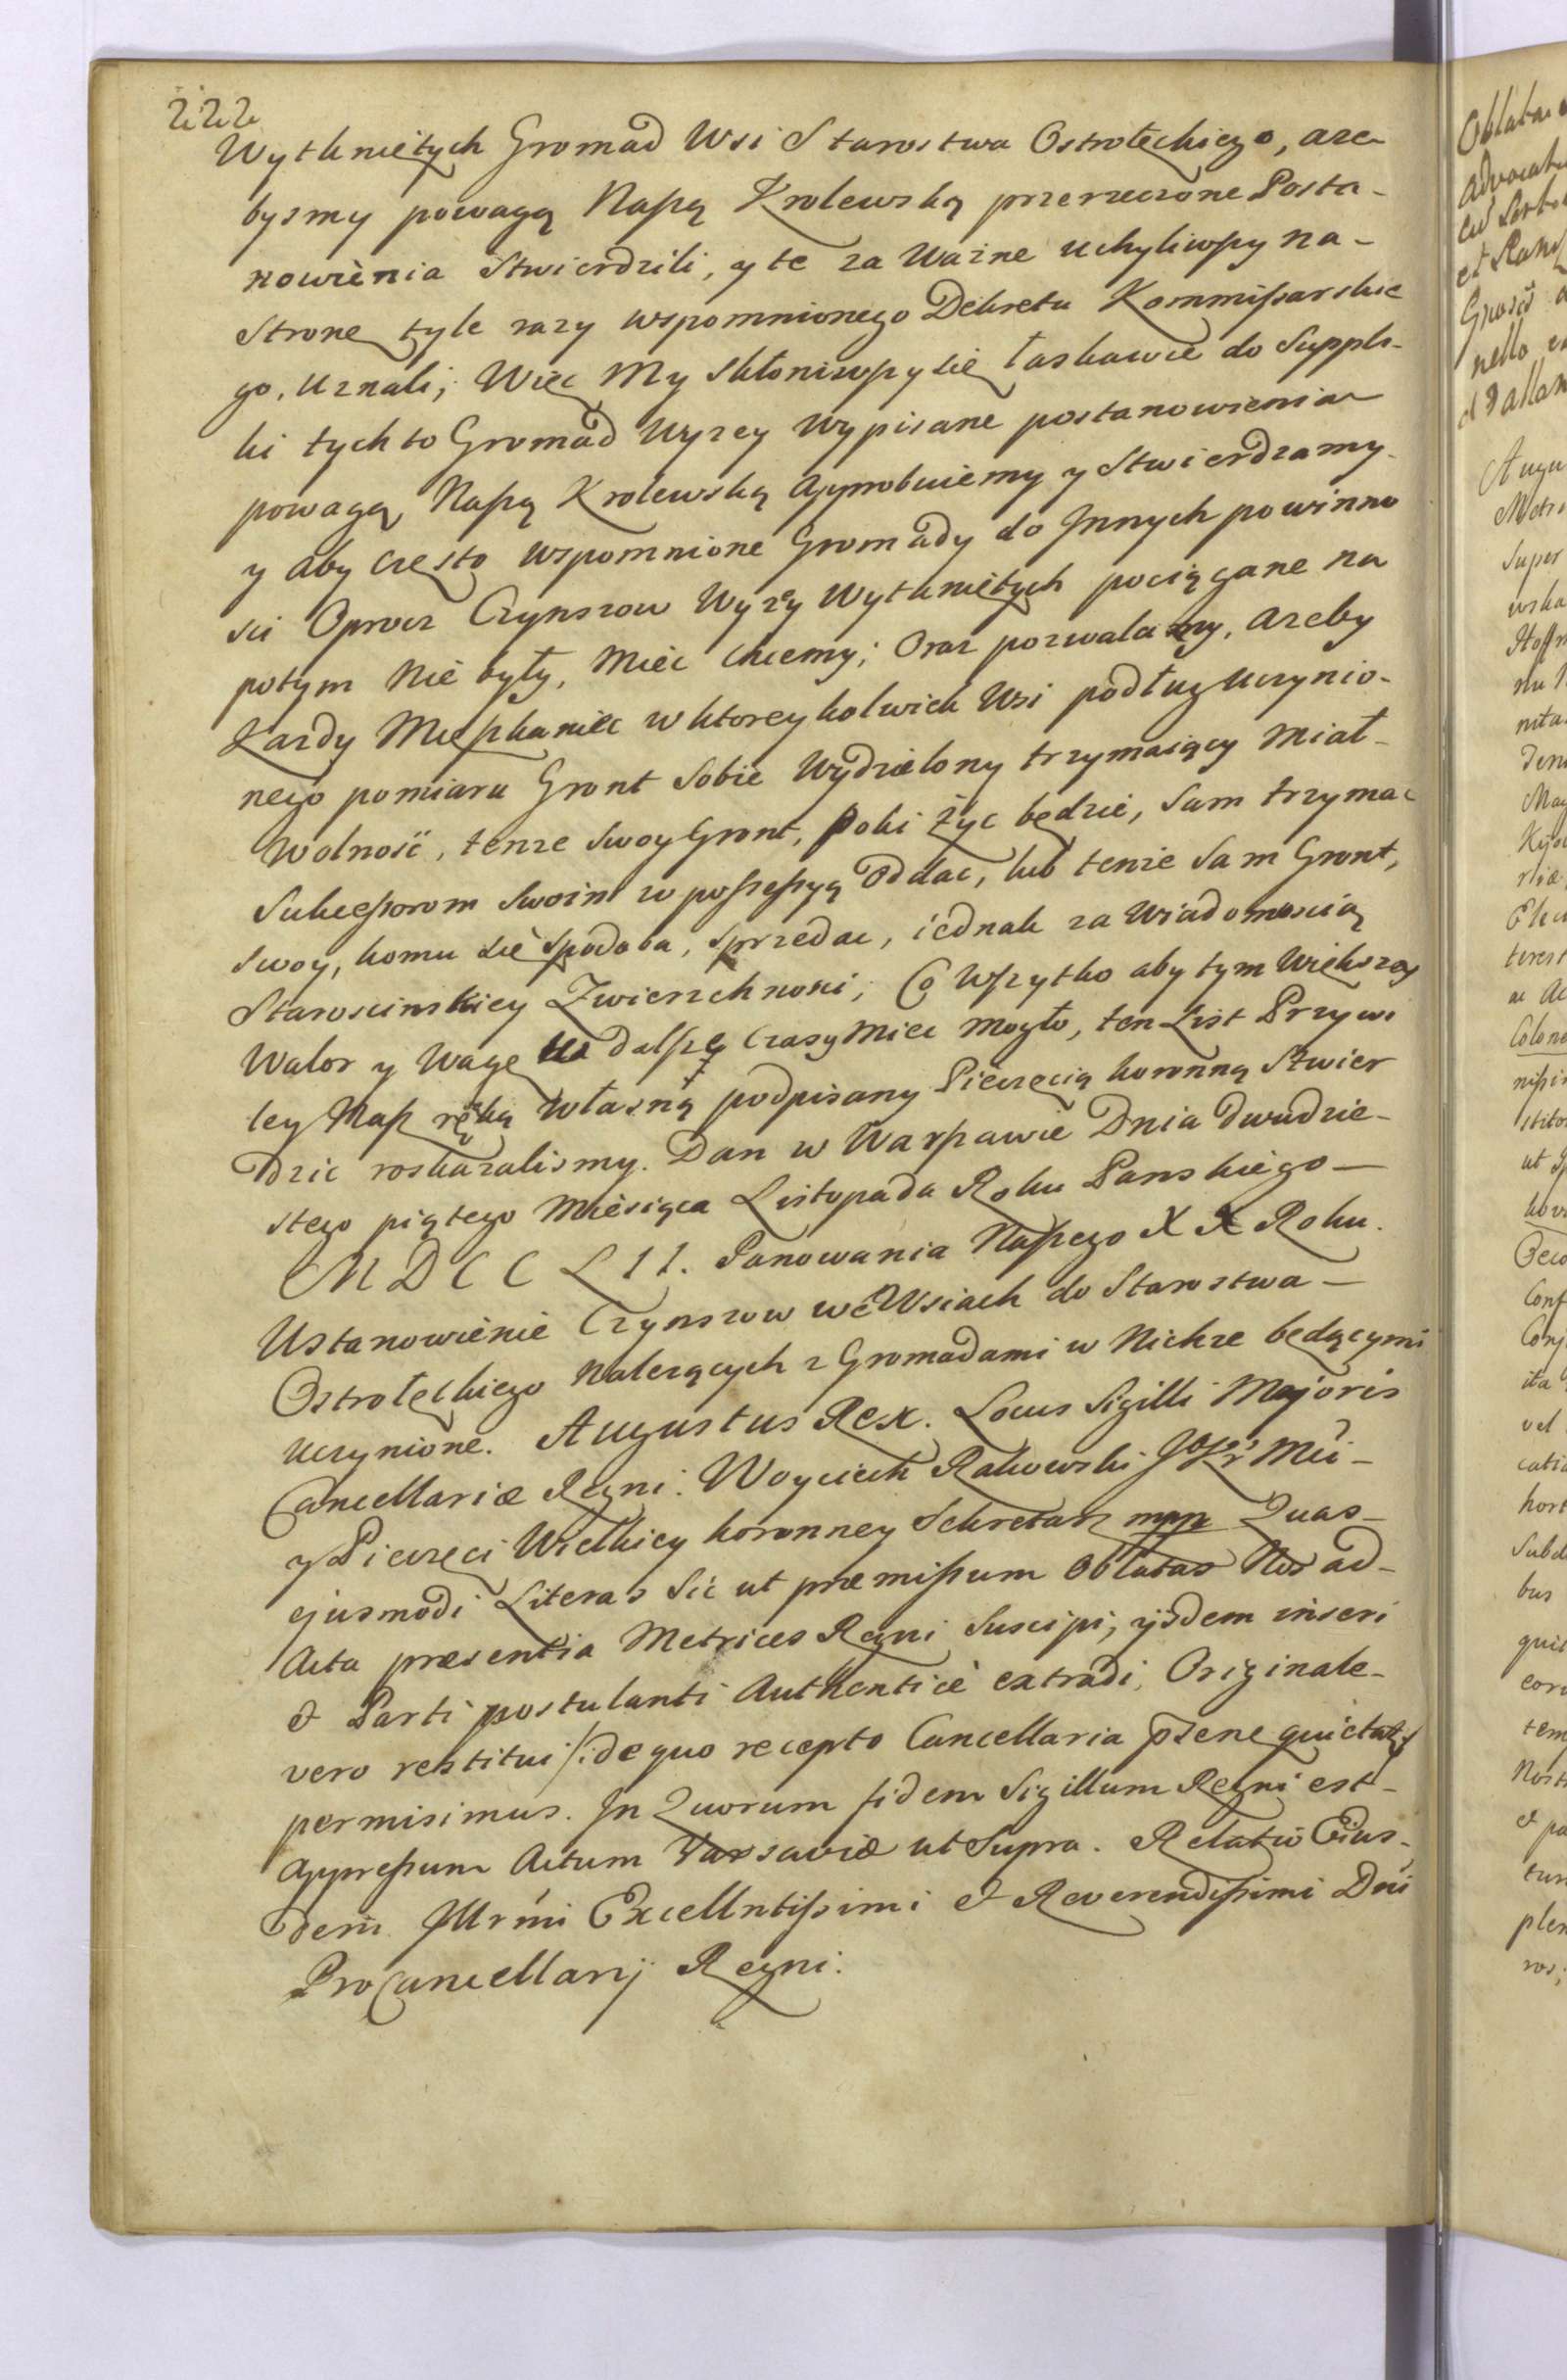 222
Wytknietych Gromad Wsi Starostwa Ostrołęckiego, aże
bysmy powagą Naszą Krolewską przerzeczone Posta-
nowienia Stwierdzili, y te za Wazne uchyliwszy na-
Strone tyle razy wspomnionego Dekretu Kommissarskie
go, Uznali; Więc My skłoniwszy sie łaskawie do Suppli-
ki tych to Gromad Wyzey Wypisane postanowienia
powagą Naszą Krolewską Approbuiemy y Stwierdzamy
y aby często wspomnione Gromady do Jnnych powinno
sci Oprocz Czynszow Wyzey Wytknietych pociągane na
potym Nie były, Miec chcemy; Oraz pozwalamy, azeby
Kazdy Mieszkaniec w ktorey kolwiek Wsi podług uczynio-
nego pomiaru Gront Sobie Wydzielony trzymaiący Miał
Wolność, tenze Swoy Gront, Poki życ będzie, Sam trzymac
Sukcessorom Swoim w possessyą Oddac, lub tenze Sam Gront,
Swoy, komu sie spodoba, sprzedac, iednak za Wiadomoscią
Staroscinskiey Zwierzchnosci; Co Wszytko aby tym Większey
Walor y Wagę na dalsze Czasy Miec mogło, ten List Przywi
ley Nasz ręką Własną podpisany Pieczęcią koronną Stwier
dzic roskazalismy. Dan w Warszawie Dnia dwudzie-
stego piątego Miesiąca Listopada Roku Panskiego-
MDCCLII. Panowania Naszego XX Roku.
Ustanowienie Czynszow we Wsiach do Starostwa-
Ostrołęckiego Nalezących z Gromadami w Nichze będącymi
uczynione. Augustus Rex. Locus Sigilli Majoris
Cancellariæ Regni. Woyciech Rakowski Mci-
y Pieczęci Wielkiey koronney Sekretarz mpp Quas-
ejusmodi Literas Sic ut præmissum Oblatas Nos ad-
Acta præsentia Metrices Regni Suscipi, ijsdem inseri
et Parti postulanti Authenticè extradi, Originale-
vero restitui /:de quo recepto Cancellaria præsens quietat:/
permisimus. Jn Quorum fidem Sigillum Regni est-
appressum Actum Varsaviæ ut Supra. Relatio Eius-
dem Jllrmi Excellntissimi et Reverendissimi Dni
ProCancellarij Regni.